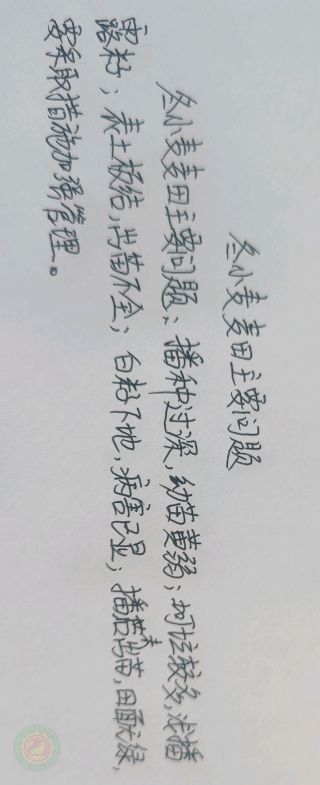 冬小麦麦田主要问题
冬小麦麦田主要问题、播种过深,幼苗黄弱;坷垃较多,浅播
露籽;表土板结,出苗不全;白籽下地,病害已显;播后未出苗,田面无绿,
要采取措施加强管理。